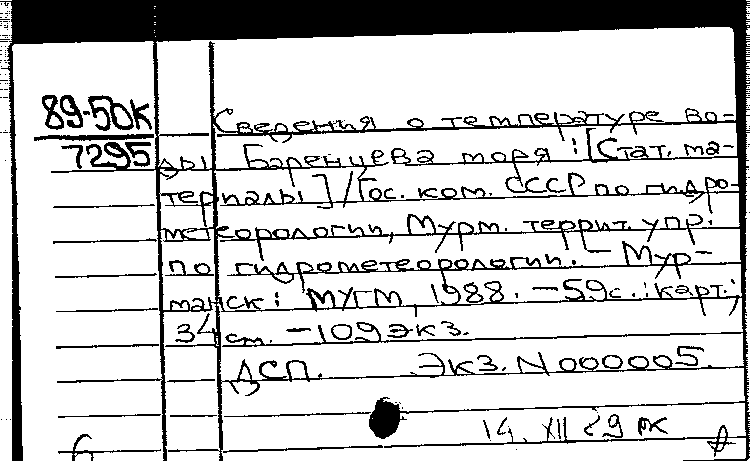 89-50к
7295
Сведения о температуре во-
ды Баренцева моря : [Стат. ма-
териалы] / Гос. ком. СССР по гидро-
метеорологии, Мурм. террит. упр.
по гидрометеорологии. - Мур-
манск : МУГМ, 1988. - 59с. : карт.;
34 см. - 109 экз.
ДСП. Экз. N 000005.
14. XII 89